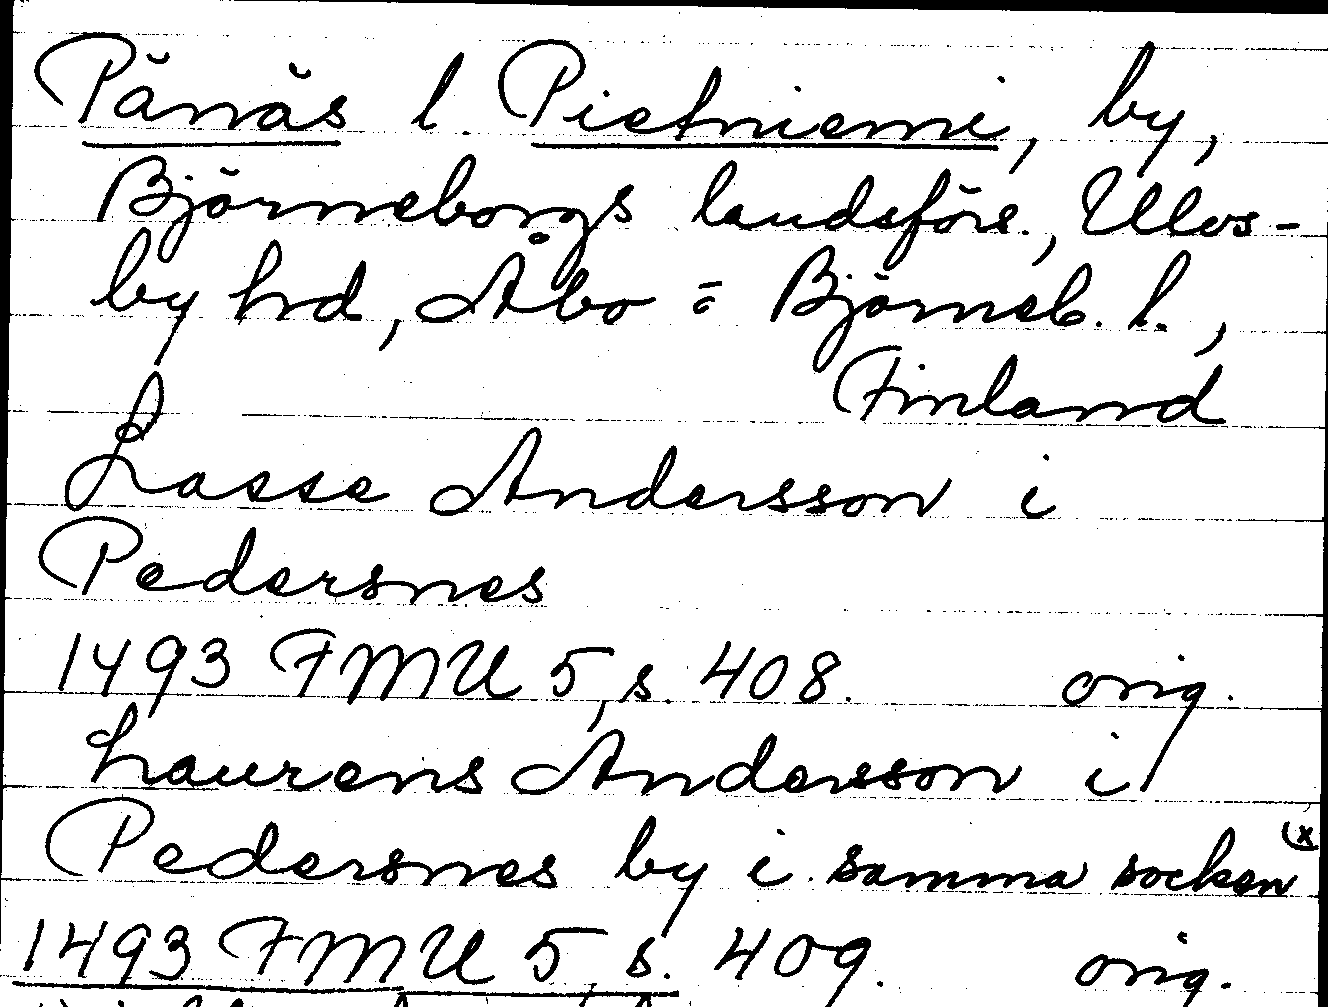 Pänäs l. Pietniemi, by,
Björneborgs landsförs., Ulvs-
by hrd, Åbo = Björneb. l.,
Finland
Lasse Andersson i
Pedersnes
1493 FMU 5, s. 408. orig.
Laurens Andersson i
Pedersnes by i samma socken (x
1493 FMU 5, s. 409. orig.